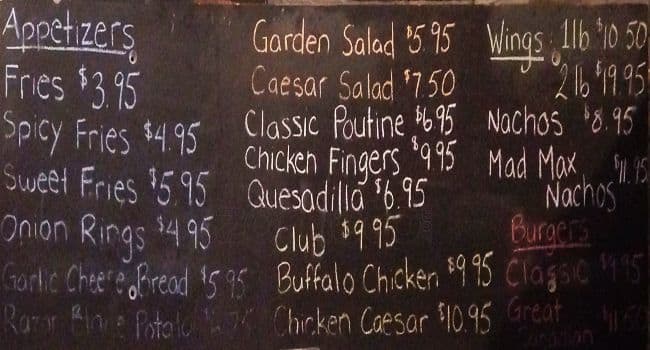 Appetizers
Fries $3.95
Spicy Fries $4.95
Sweet Fries $5.95
Onion Rings $4.95
Garlic Cheese Bread $5.95
Garden Salad $5.95
Caesar Salad $7.50
Classic Poutine $6.95
Chicken Fingers $9.95
Quesadilla $6.95
Club $9.95
Buffalo Chicken $9.95
Chicken Caesar $10.95
Wings: 1lb $10.50
2lb $19.95
Nachos $8.95
Mad Max $11.95
Nachos
Burgers
Classic
Great